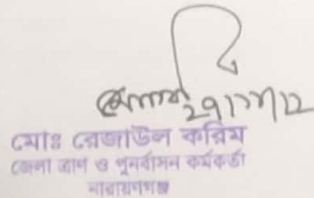 ২৭/১২/১২
মোঃ রেজাউল করিম
জেলা ত্রাণ ও পুনর্বাসন কর্মকর্তা
নারায়ণগঞ্জ